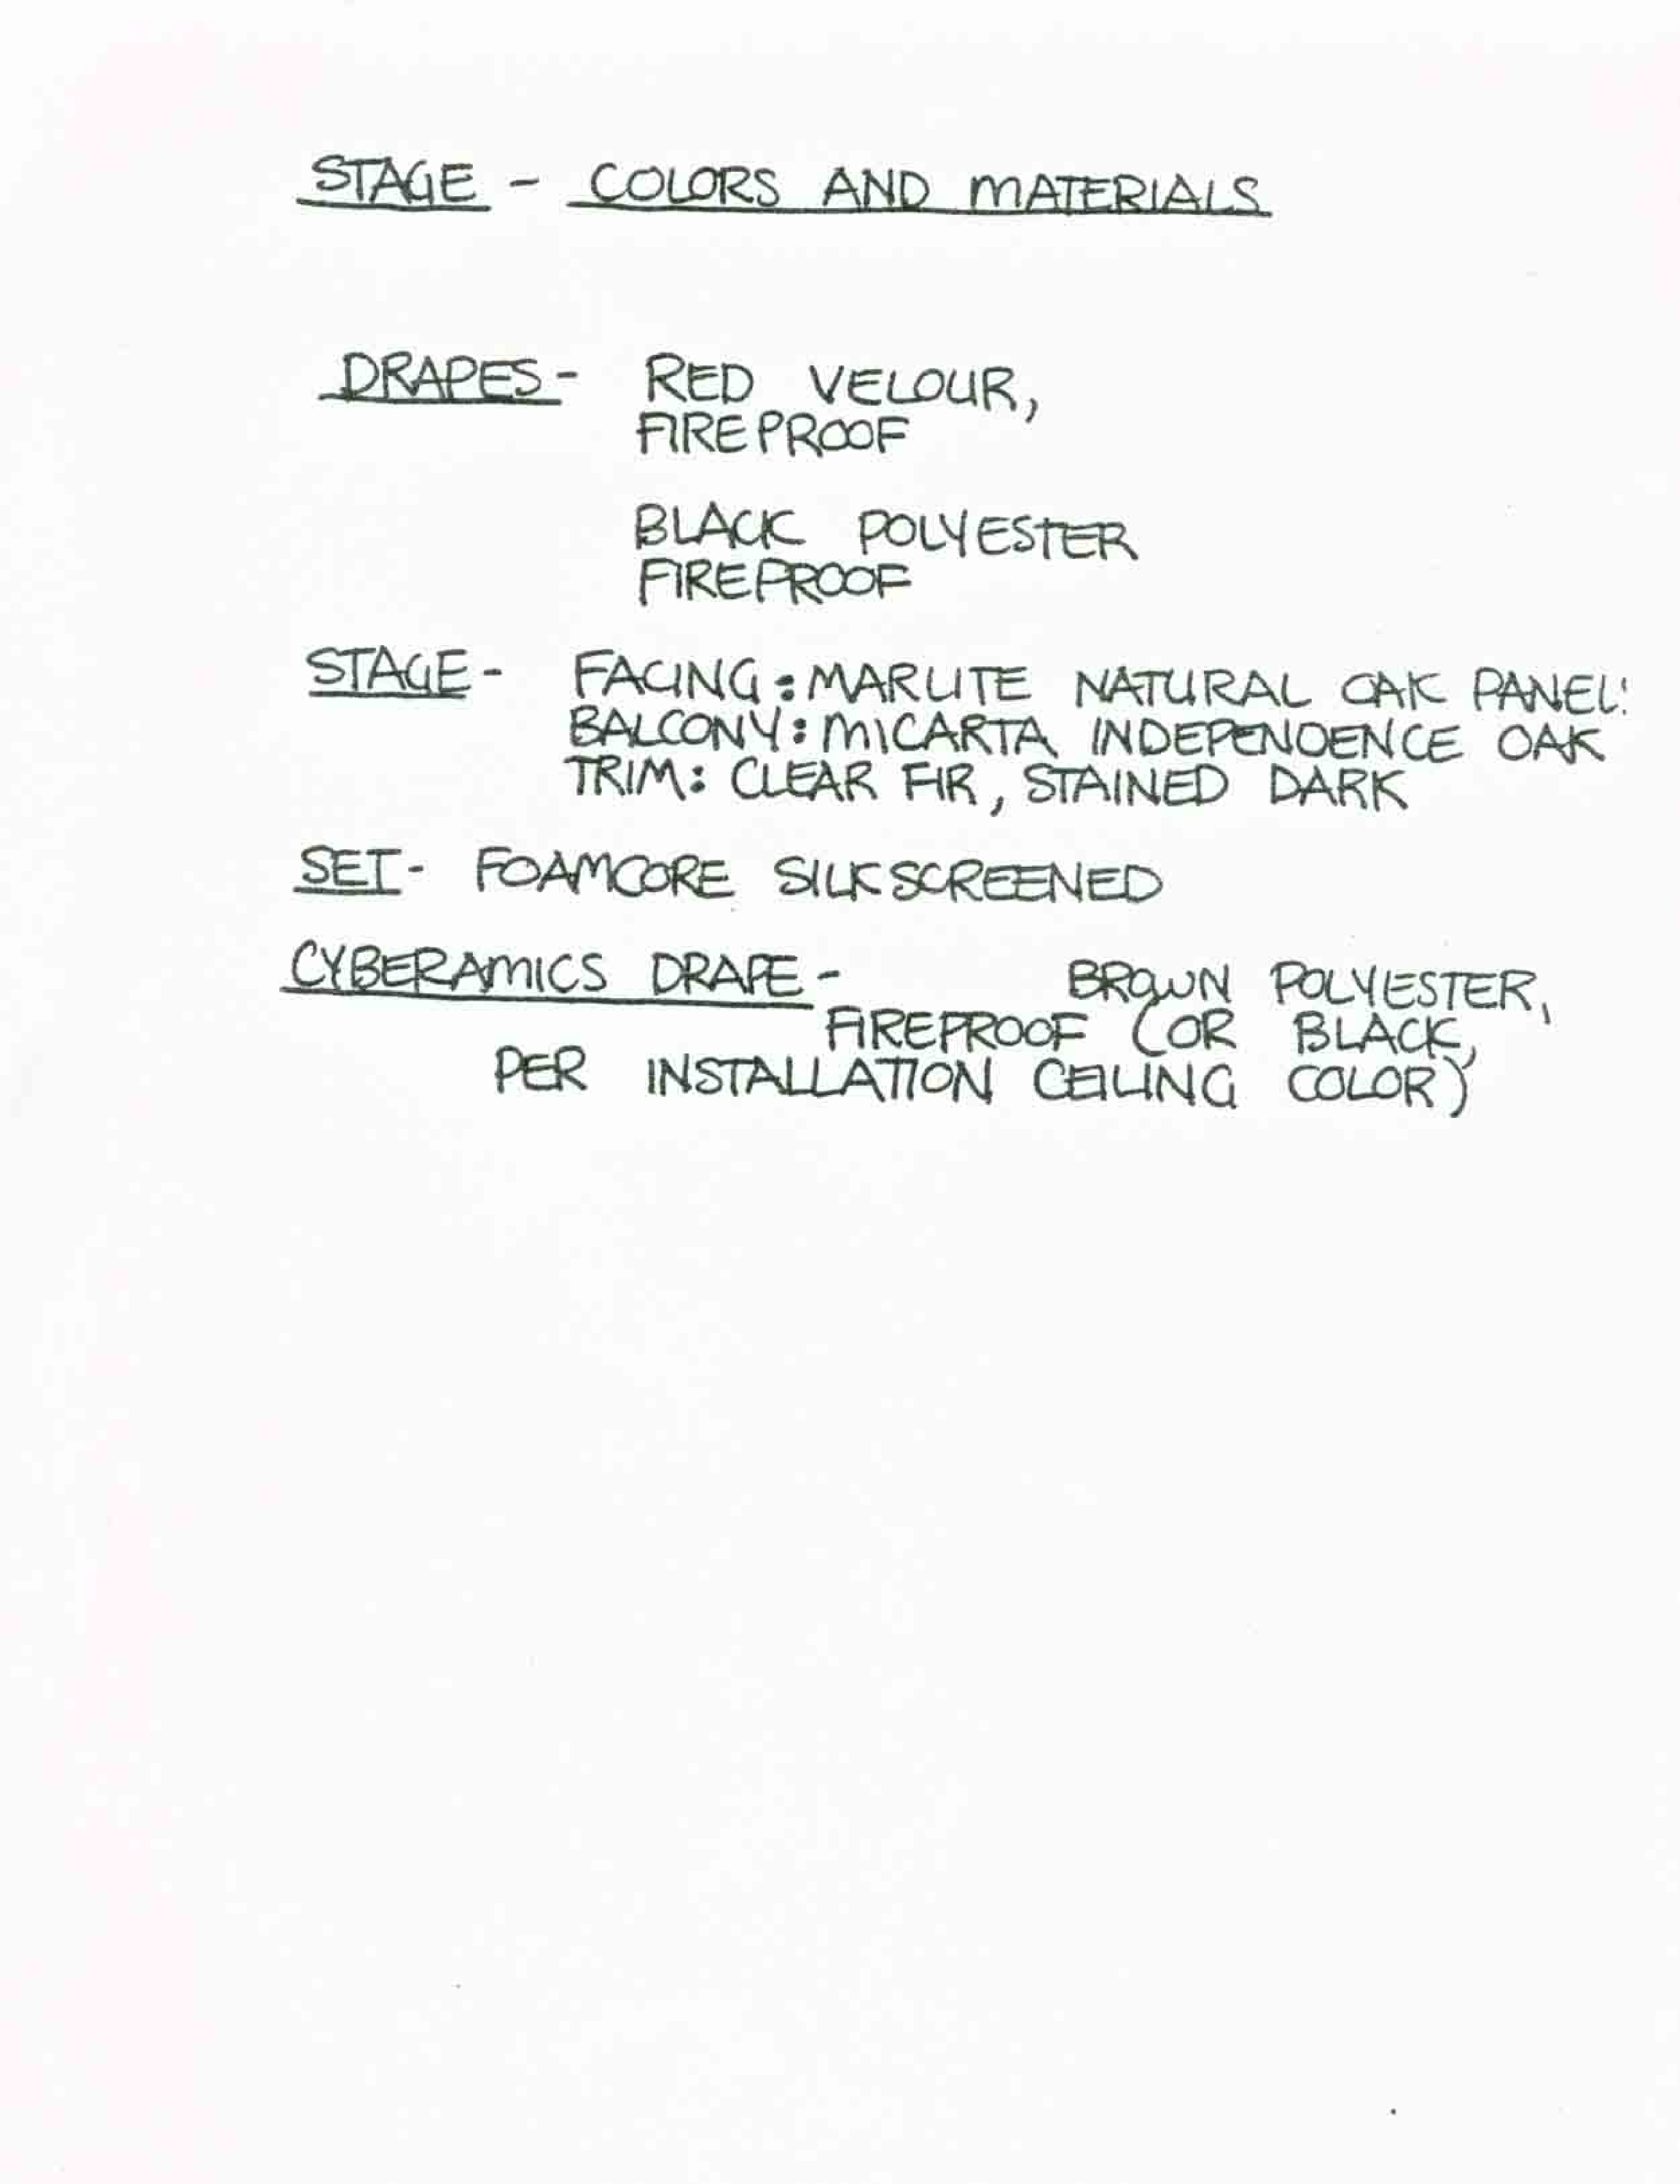 STAGE - COLORS AND MATERIALS
DRAPES - RED VELOUR,
FIREPROOF
BLACK POLYESTER
FIREPROOF
STAGE - FACING: MARLITE NATURAL OAK PANEL:
BALCONY: MICARTA INDEPENDENCE OAK
TRIM: CLEAR FIR, STAINED DARK
SET - FOAMCORE SILKSCREENED
CYBERAMICS DRAPE - BROWN POLYESTER,
FIREPROOF (OR BLACK,
PER INSTALLATION CEILING COLOR)